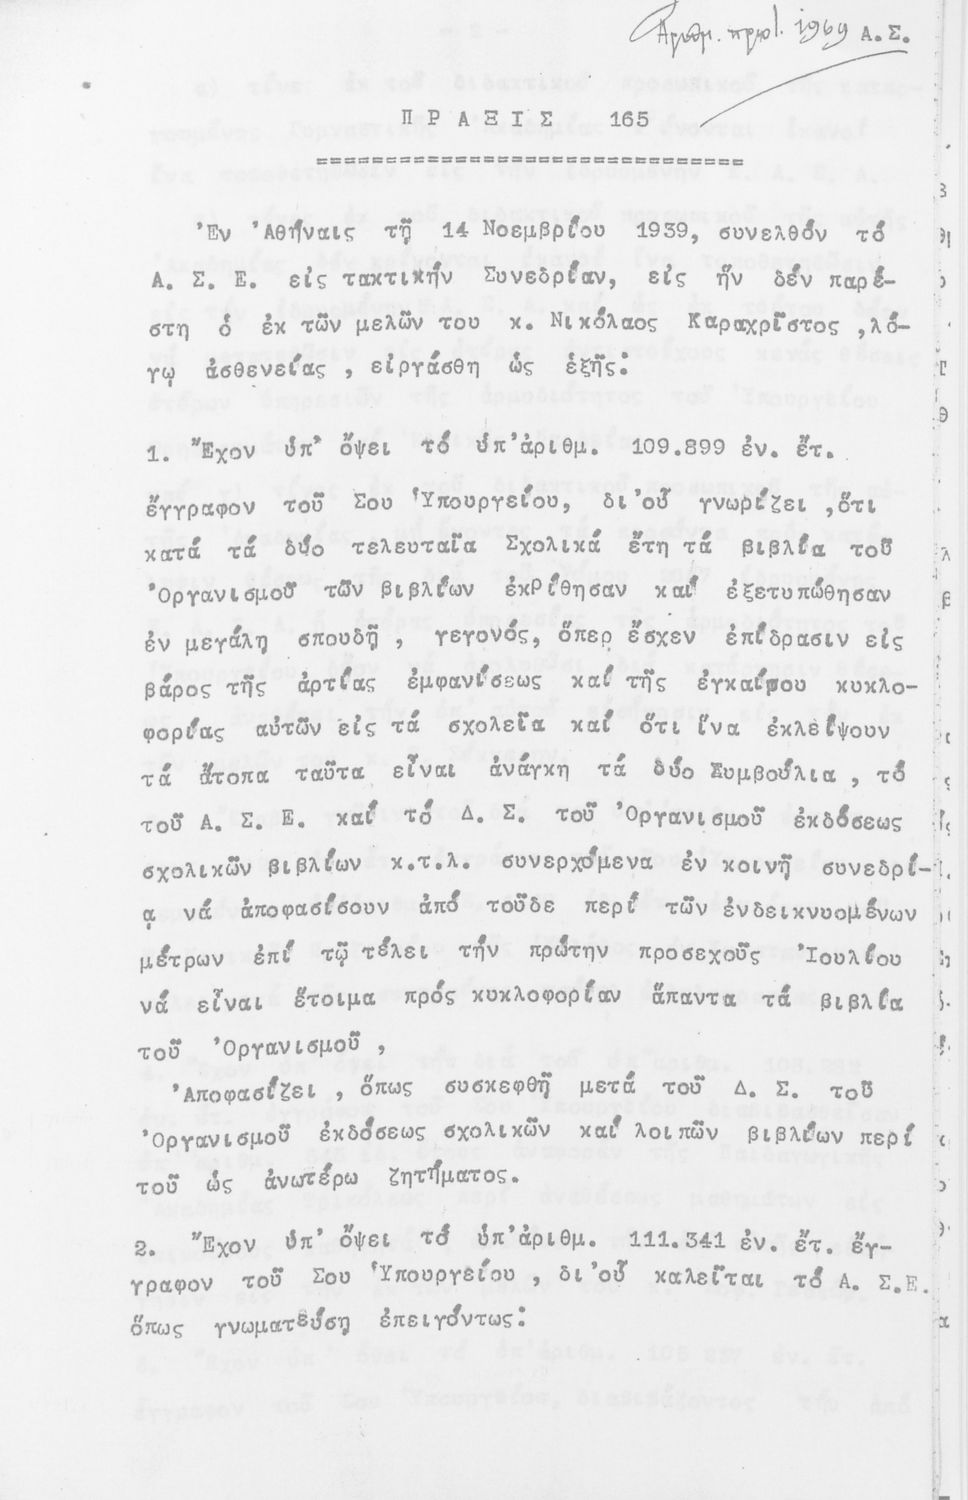 Αριθμ. πρωτ. 1969 Α.Σ.
ΠΡΑΞΙΣ 165
===============================
Ἐν Ἀθήναις τῇ 14 Νοεμβρίου 1939, συνελθόν τό
Α. Σ. Ε. εἰς τακτικήν Συνεδρίαν, εἰς ἥν δέν παρέ-
στη ὁ ἐκ τῶν μελῶν του κ. Νικόλαος Καραχρῖστος ,λό-
γῳ ἀσθενείας , εἰργάσθη ὡς ἑξῆς:
1. Ἔχον ὑπ' ὄψει τό ὑπ'ἀριθμ. 109.899 ἐν. ἔτ.
ἔγγραφον τοῦ Σου Ὑπουργείου, δι'οὗ γνωρίζει ,ὅτι
κατά τά δύο τελευταῖα Σχολικά ἔτη τά βιβλία τοῦ
Ὀργανισμοῦ τῶν βιβλίων ἐκρίθησαν καί ἐξετυπώθησαν
ἐν μεγάλη σπουδῇ , γεγονός, ὅπερ ἔσχεν ἐπίδρασιν εἰς
βάρος τῆς ἀρτίας ἐμφανίσεως καί τῆς ἐγκαίρου κυκλο-
φορίας αὐτῶν εἰς τά σχολεῖα καί ὅτι ἵνα ἐκλείψουν
τά ἄτοπα ταῦτα εἶναι ἀνάγκη τά δύο Συμβούλια , τό
τοῦ Α. Σ. Ε. καί τό Δ. Σ. τοῦ Ὀργανισμοῦ ἐκδόσεως
σχολικῶν βιβλίων κ.τ.λ. συνερχόμενα ἐν κοινῇ συνεδρί-
ᾳ νά ἀποφασίσουν ἀπό τοῦδε περί τῶν ἐνδεικνυομένων
μέτρων ἐπί τῷ τέλει τήν πρώτην προσεχοῦς Ἰουλίου
νά εἶναι ἕτοιμα πρός κυκλοφορίαν ἅπαντα τά βιβλία
τοῦ Ὀργανισμοῦ ,
Ἀποφασίζει , ὅπως συσκεφθῇ μετά τοῦ Δ. Σ. τοῦ
Ὀργανισμοῦ ἐκδόσεως σχολικῶν καί λοιπῶν βιβλίων περί
τοῦ ὡς ἀνωτέρω ζητήματος.
2. Ἔχον ὑπ' ὄψει τό ὑπ'ἀριθμ. 111.341 ἐν. ἔτ. ἔγ-
γραφον τοῦ Σου Ὑπουργείου , δι'οὗ καλεῖται τό Α. Σ.Ε.
ὅπως γνωματεύσῃ ἐπειγόντως: